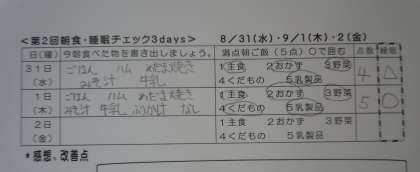 <第2回朝食・睡眠チェック3days> 8／31(水)・9／1(木)・2(金)
日(曜) 今朝食べた物を書き出しましょう。 満点朝ご飯(5点)○で囲む 点数 睡眠
31日 ごはん ハム めだま焼き 1主食 2おかず 3野菜 4 △
(水) みそ汁 牛乳 4くだもの 5乳製品
1日 ごはん ハム めだま焼き 1主食 2おかず 3野菜 5 ○
(木) みそ汁 牛乳 ふりかけ なし 4くだもの 5乳製品
2日 1主食 2おかず 3野菜
(金) 4くだもの 5乳製品
*感想、改善点